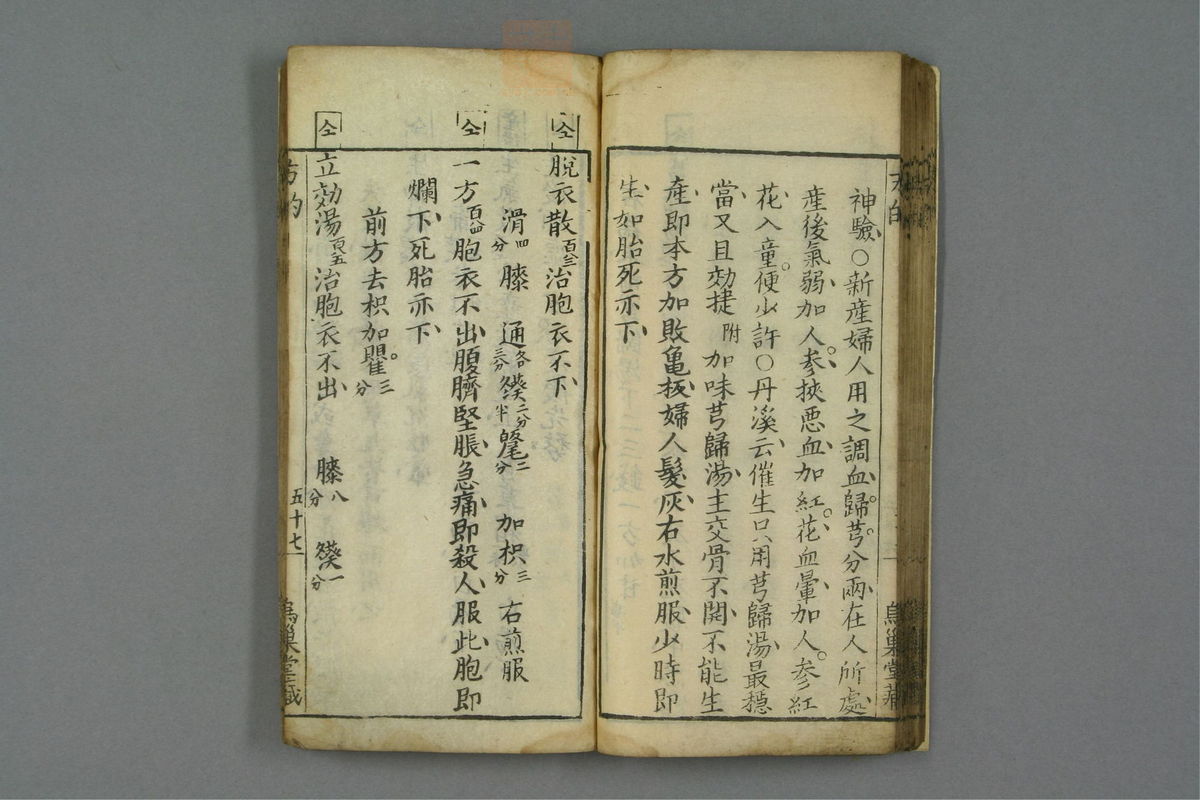 神驗○新産婦人用之調血歸芎分兩在人所處
産後氣弱加人參挾悪血加紅花血暈加人參紅
花入童便少許○丹溪云催生只用芎歸湯最穩
當又且効捷附加味芎歸湯主交骨不開不能生
產即本方加敗亀板婦人髮灰右水煎服少時即
生如胎死亦下
脫衣散百三治胞衣不下
滑四分 膝 通各三分 二分半 二分 加枳三分 右煎服
一方百四胞衣不出腹臍堅脹急痛即殺人服此胞即
爛下死胎亦下
前方去枳加瞿三分
立効湯百五治胞衣不出 膝八分 一分
方的 五十七 烏巢堂藏